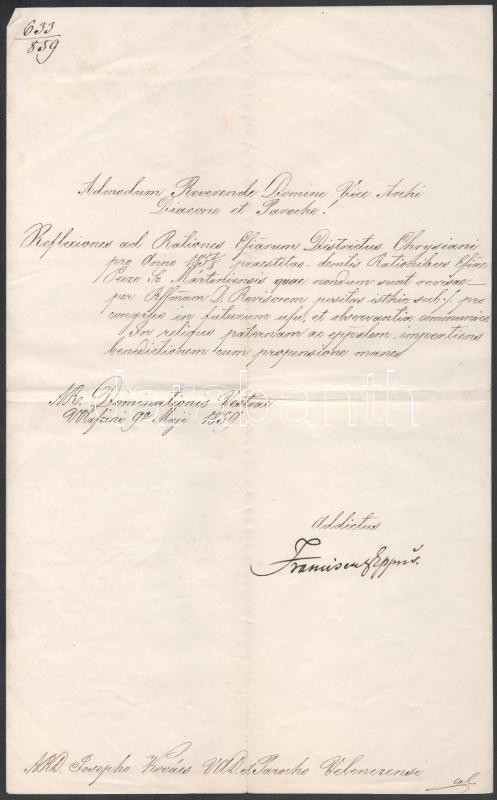 633
859
Admodum Reverende Domine Vice Archi
Diacone et Paroche!
Reflexiones ad Rationes Districtus Chrysiani
pro Anno praestitas - demtis Rationibus
Mártoniensis quae nondum sunt revisae -
per D. Revisorem positas isthic sub ./. pro
congruo in futurum usu, et observantia communico.
In reliquo paternam ac impertiens
benedictionem cum propensione maneo
AR. Dominationis Vestrae
9a Maji 1859
addictus
Franciscus Eppus.
ARD. Josepho Kovács VAD. et Parocho Velenczensi